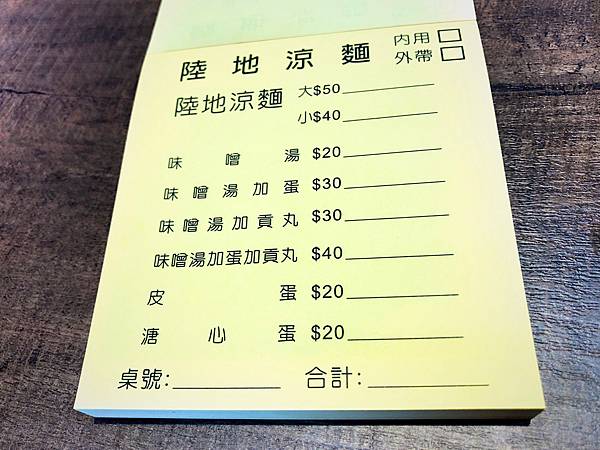 陸地涼麵 內用□
外帶□
陸地涼麵 大$50
小$40
味噌湯 $20
味噌湯加蛋 $30
味噌湯加貢丸 $30
味噌湯加蛋加貢丸 $40
皮蛋 $20
溏心蛋 $20
桌號: 合計: